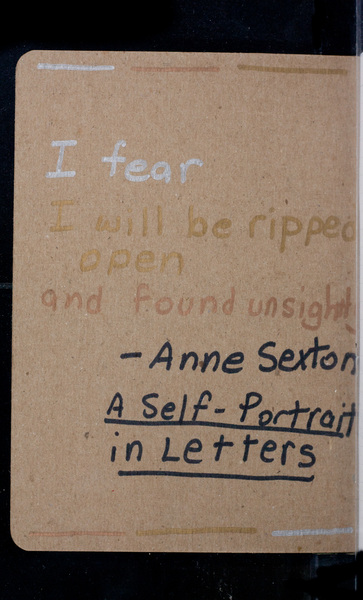 I fear
I will be ripped
open
and found unsightly
- Anne Sexton
A Self-Portrait
in Letters